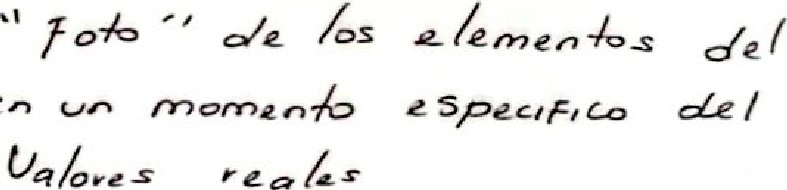 "Foto" de los elementos del
en un momento especifico del
Valores reales